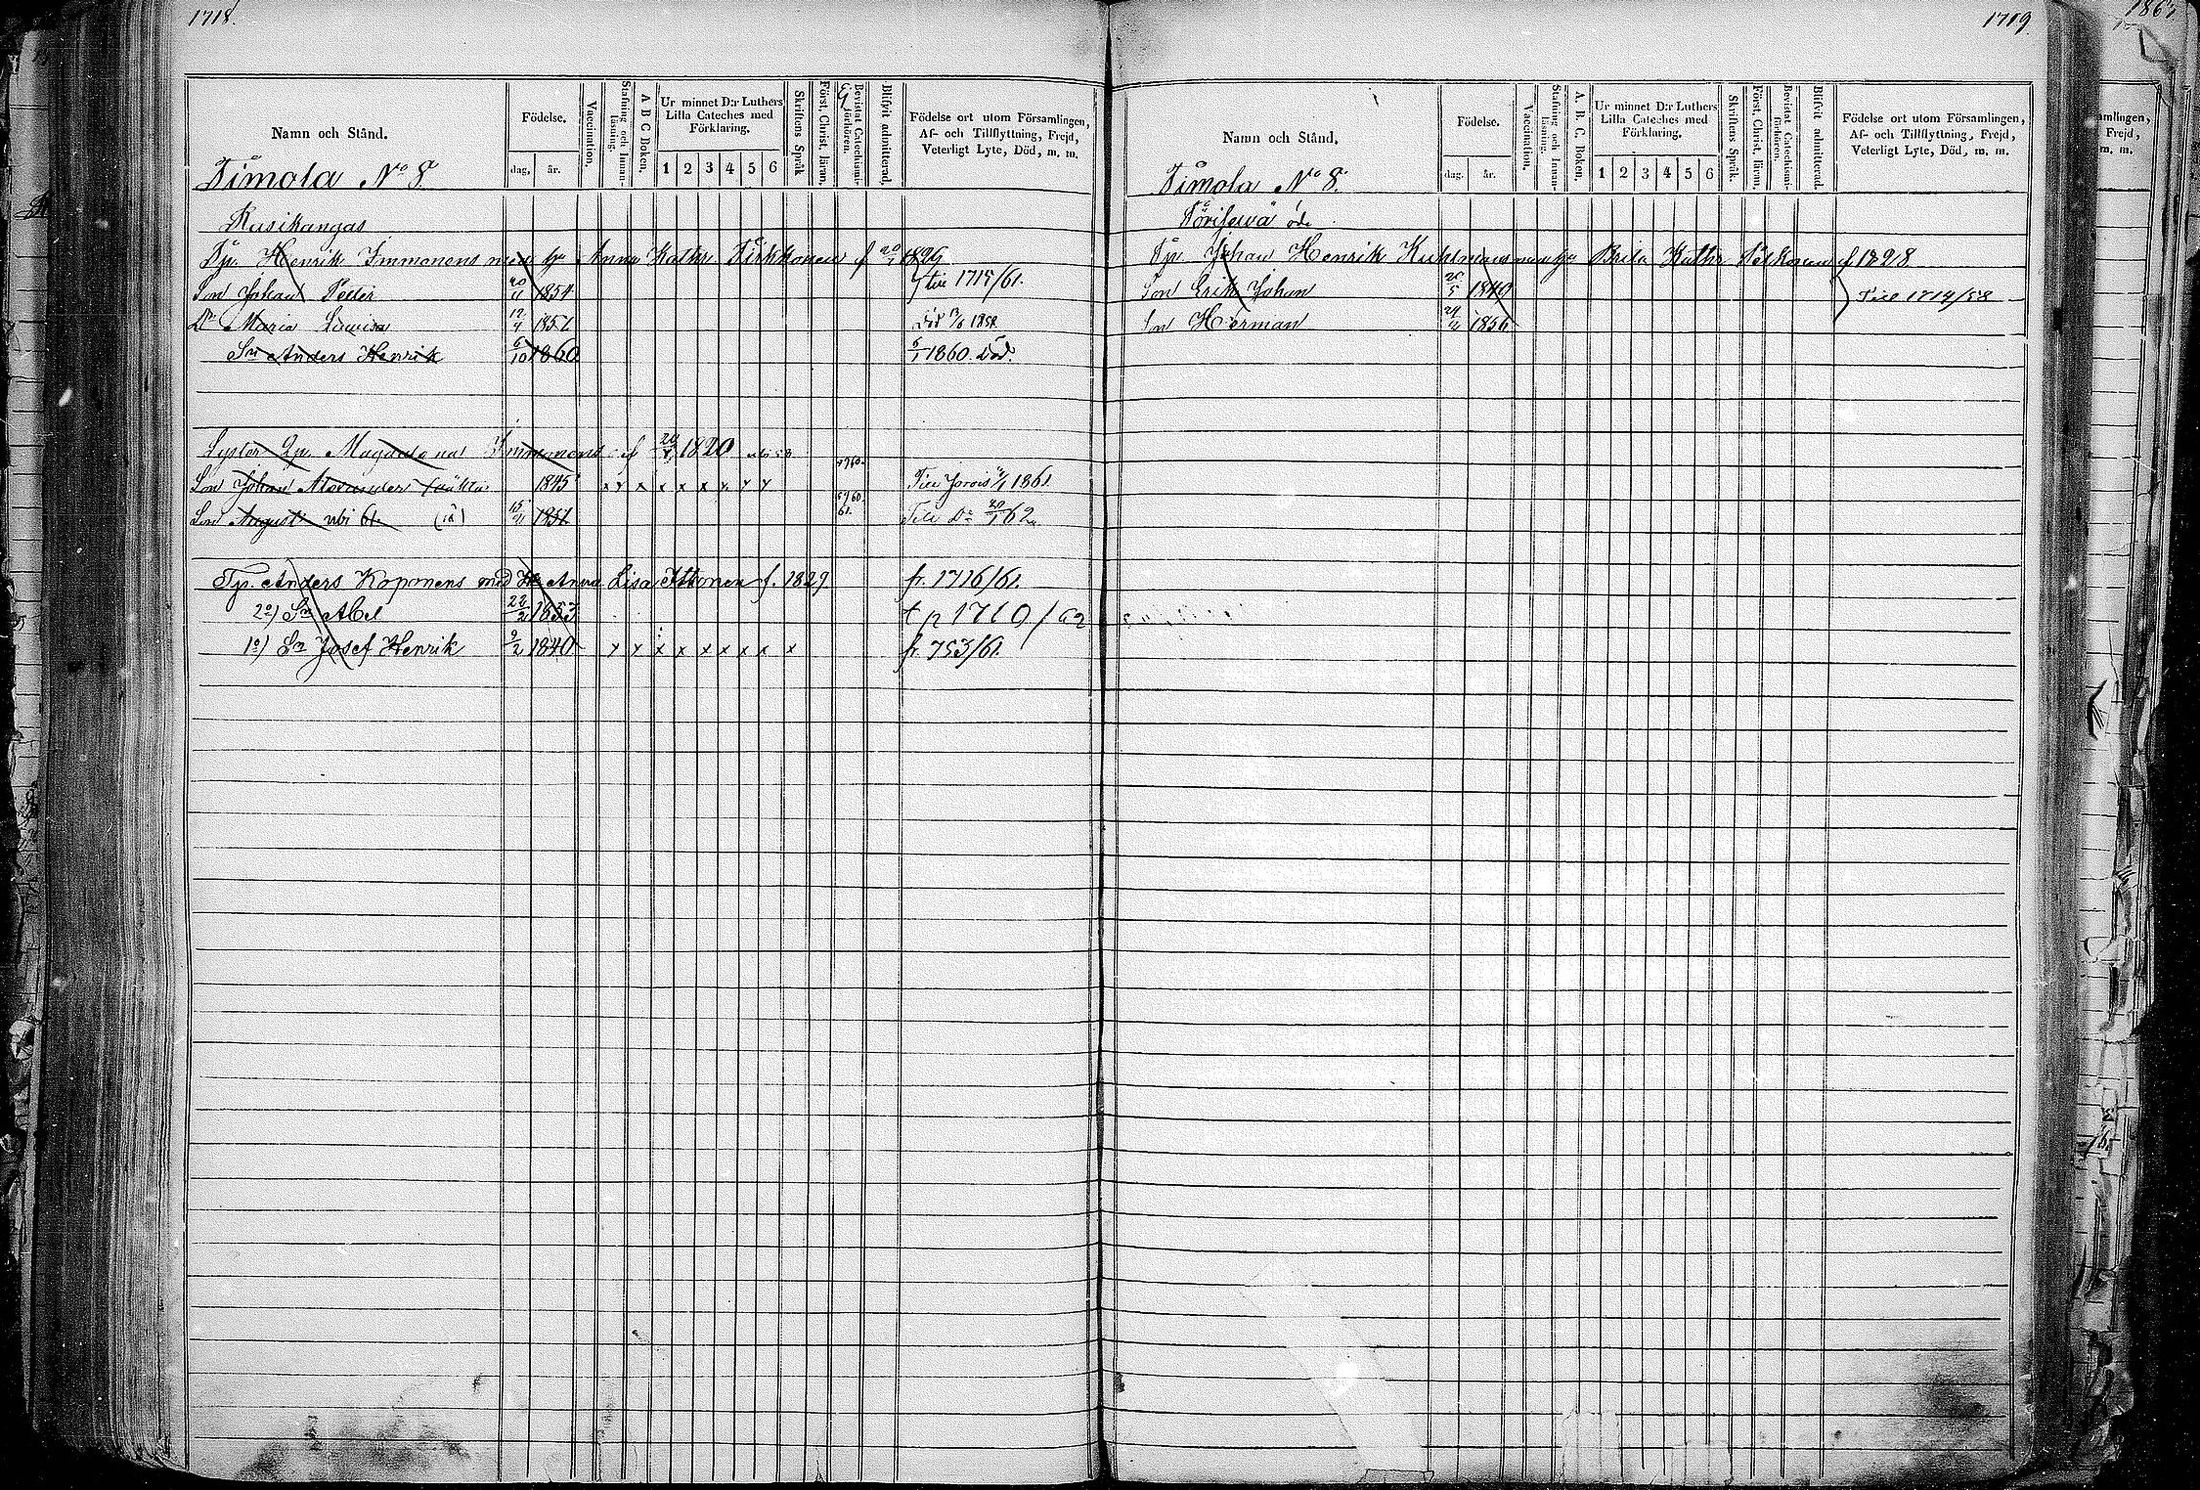 1718.
Namn och Stånd.
Födelse.
dag, år.
Vaccination.
Stafning och Innan-läsning.
A B C Boken.
Ur minnet D:r Luthers Lilla Cateches med Förklaring.
1 2 3 4 5 6
Skriftens Språk
Först. Christ. läran.
Bevistat Catechismi-förhören.
Blifvit admitterad.
Födelse ort utom Församlingen,
Af- och Tillflyttning, Frejd,
Veterligt Lyte, Död, m. m.
Timola No 8
Rusikangas
Henrik Immonens Anna Kathr. f 1826
Son Johan Petter 20/11 1854 1715/61.
Dr Maria Lovisa 1857 Död 1858
Sn Anders Henrik 6/10 1860 1860. Död.
Syster Magdalena Immonens f 1820
Son Johan 1845 x x x x x x x x Till Jorois 1861
Son August ubi 61 15/11 1851 61. Till Do 62
Anders Koponens med Hu Anna Lisa Ittonen f. 1829 fr. 1716/61.
2o) Sn Abel 22/2 1853 t p 1710/62
1o) Sn Josef Henrik 9/2 1840 x x x x x x x x x fr. 753/61.
1719
Namn och Stånd.
Födelse.
dag. år.
Vaccination.
Stafning och Innan-läsning.
A. B. C. Boken.
Ur minnet D:r Luthers Lilla Cateches med Förklaring.
1 2 3 4 5 6
Skriftens Språk.
Först. Christ. läran.
Bevistat Catechismi-förhören.
Blifvit admitterad.
Födelse ort utom Församlingen,
Af- och Tillflyttning, Frejd,
Veterligt Lyte, Död, m. m.
Timola No 8.
öde
Johan Henrik Brita Kathr f 1828
Son Erik Johan 1840 Till 1714/58
Son Herman 1856
mlingen,
Frejd,
m. m.